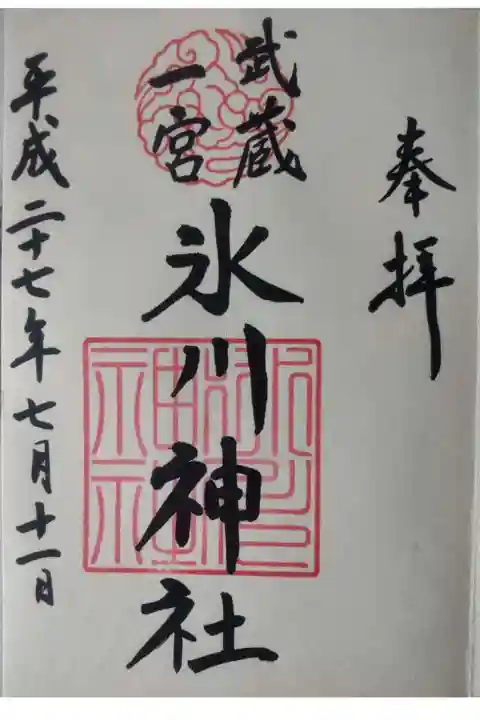 奉拝
武蔵
一宮
氷川神社
氷川神社
平成二十七年七月十一日